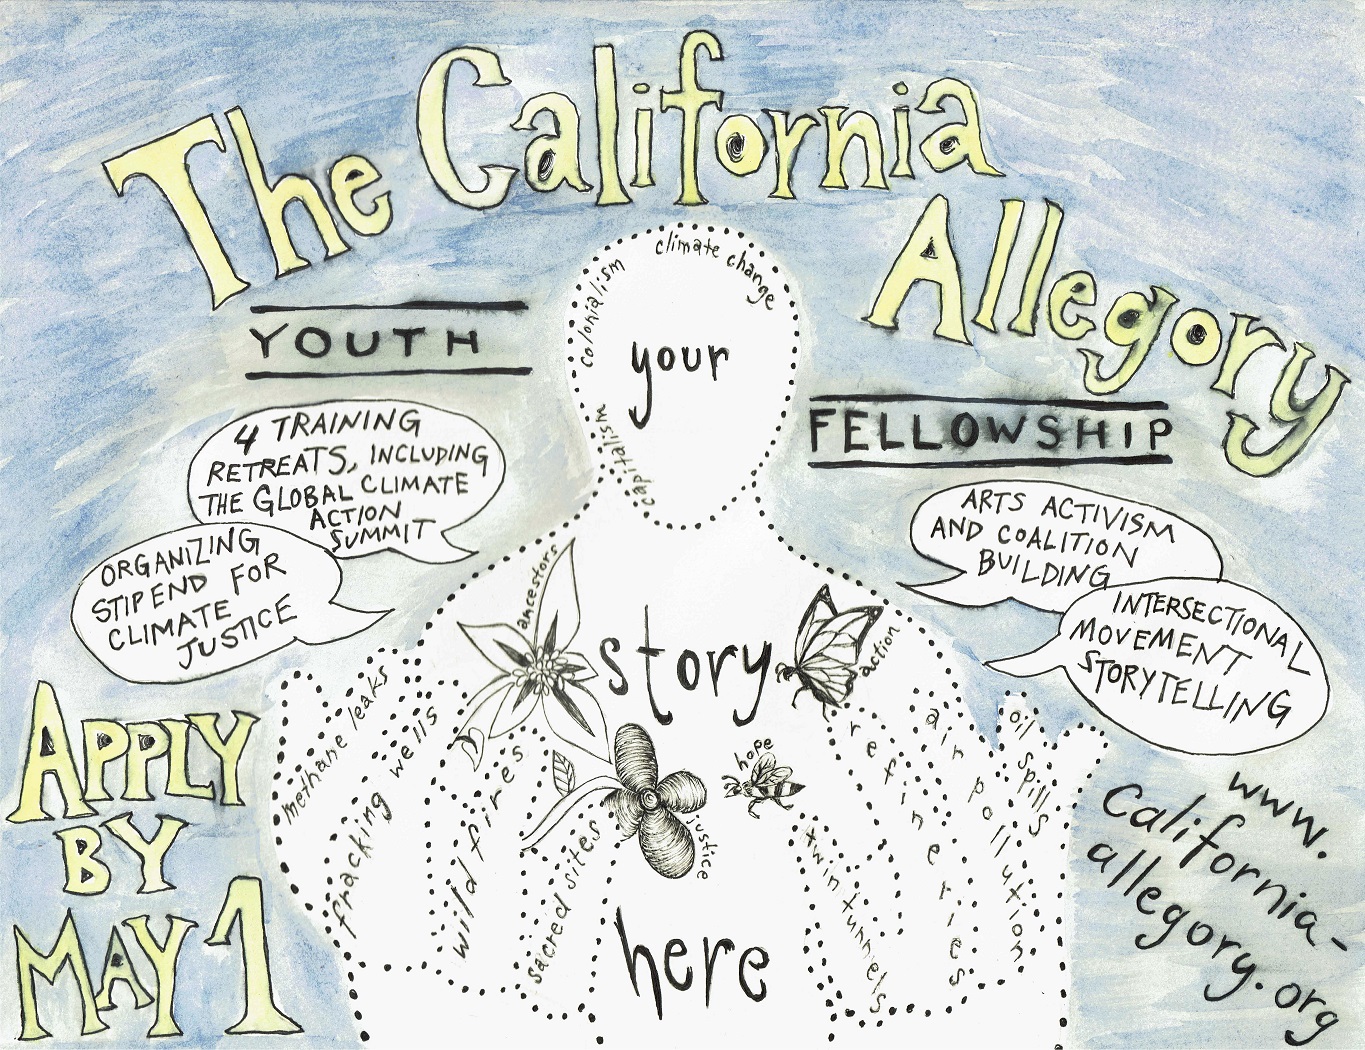 The California
Allegory
YOUTH
FELLOWSHIP
4 TRAINING
RETREATS, INCLUDING
THE GLOBAL CLIMATE
ACTION
SUMMIT
ORGANIZING
STIPEND FOR
CLIMATE
JUSTICE
ARTS ACTIVISM
AND COALITION
BUILDING
INTERSECTIONAL
MOVEMENT
STORYTELLING
colonialism
climate change
capitalism
your
ancestors
story
action
hope
justice
here
methane leaks
fracking wells
wildfires
sacred sites
twin tunnels
refineries
air pollution
oil spills
APPLY
BY
MAY 1
www.
california-
allegory.org